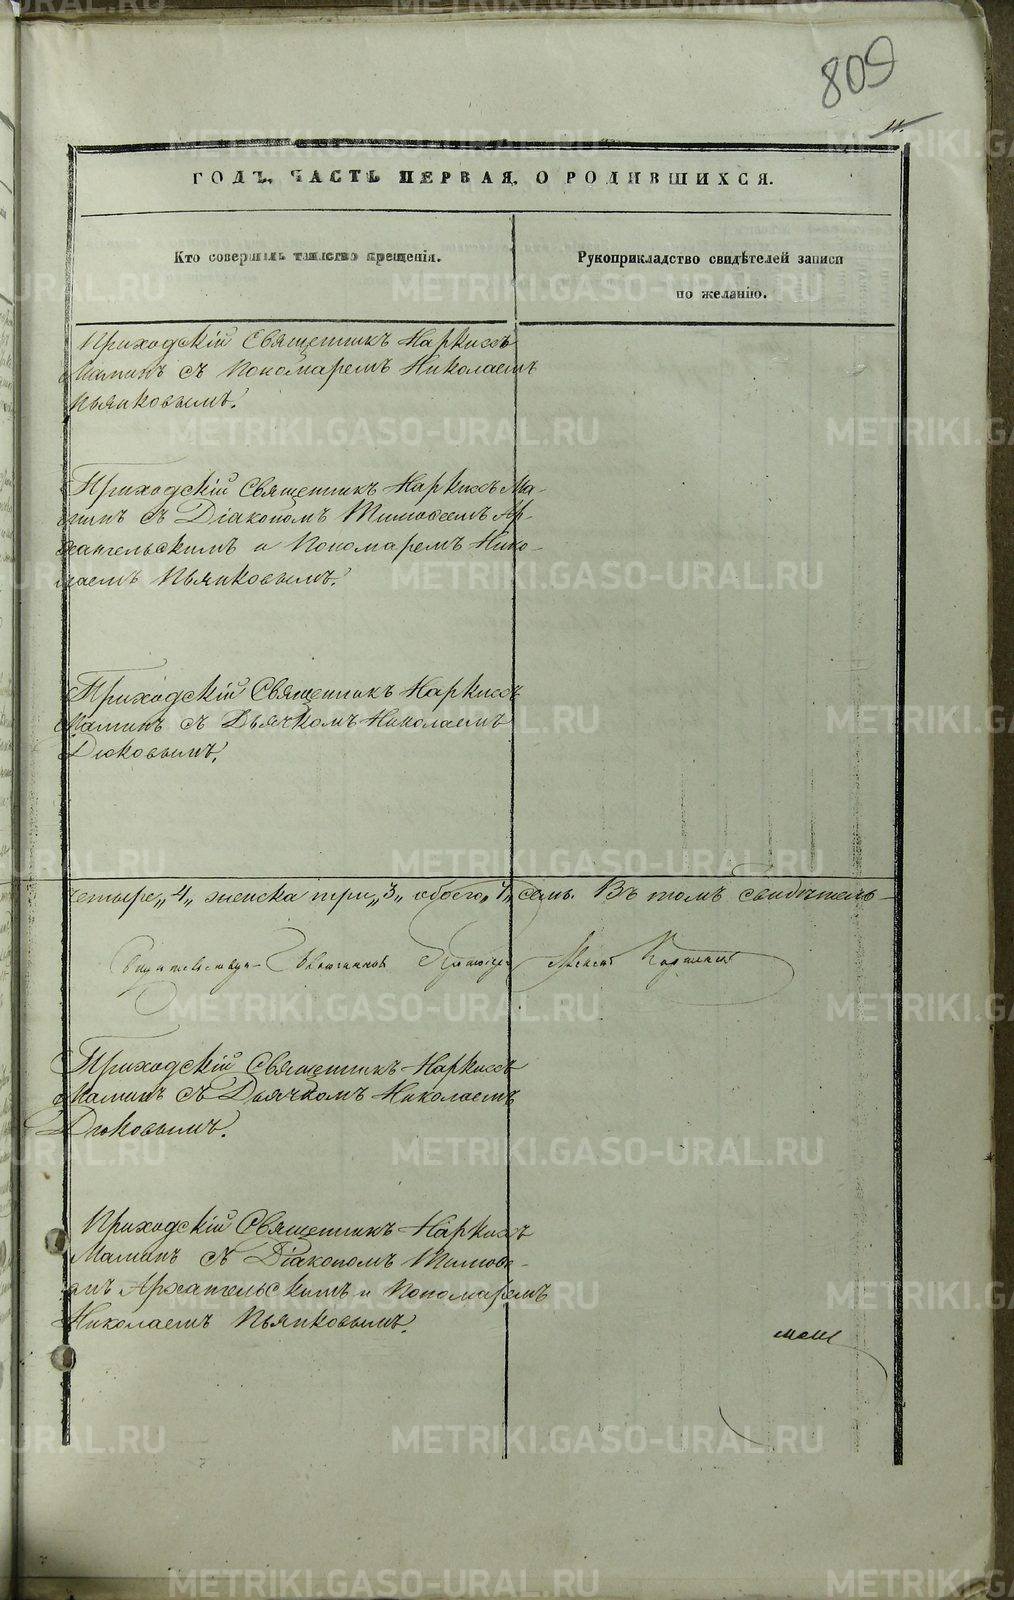 809
11.
ГОДЪ, ЧАСТЬ ПЕРВАЯ, О РОДИВШИХСЯ.
Кто совершалъ таинство крещенія.
Рукоприкладство свидѣтелей записи
по желанію.
Приходскій Священникъ Наркиссъ
Маминъ съ Пономаремъ Николаемъ
Пьянковымъ.
Приходскій Священникъ Наркиссъ Ма-
минъ съ Діакономъ Тимоѳеемъ Ар-
хангельскимъ и Пономаремъ Нико-
лаемъ Пьянковымъ.
Приходскій Священникъ Наркиссъ
Маминъ съ Дьячкомъ Николаемъ
Дюковымъ.
четыре „4„ женска три „3„ обоего „7„ семь. Въ томъ свидѣтель-
Священникъ
Приходскій Священникъ Наркиссъ
Маминъ съ Дьячкомъ Николаемъ
Дюковымъ.
Приходскій Священникъ Наркиссъ
Маминъ съ Діакономъ Тимоѳе-
емъ Архангельскимъ и Пономаремъ
Николаемъ Пьянковымъ.
METRIKI.GASO-URAL.RU